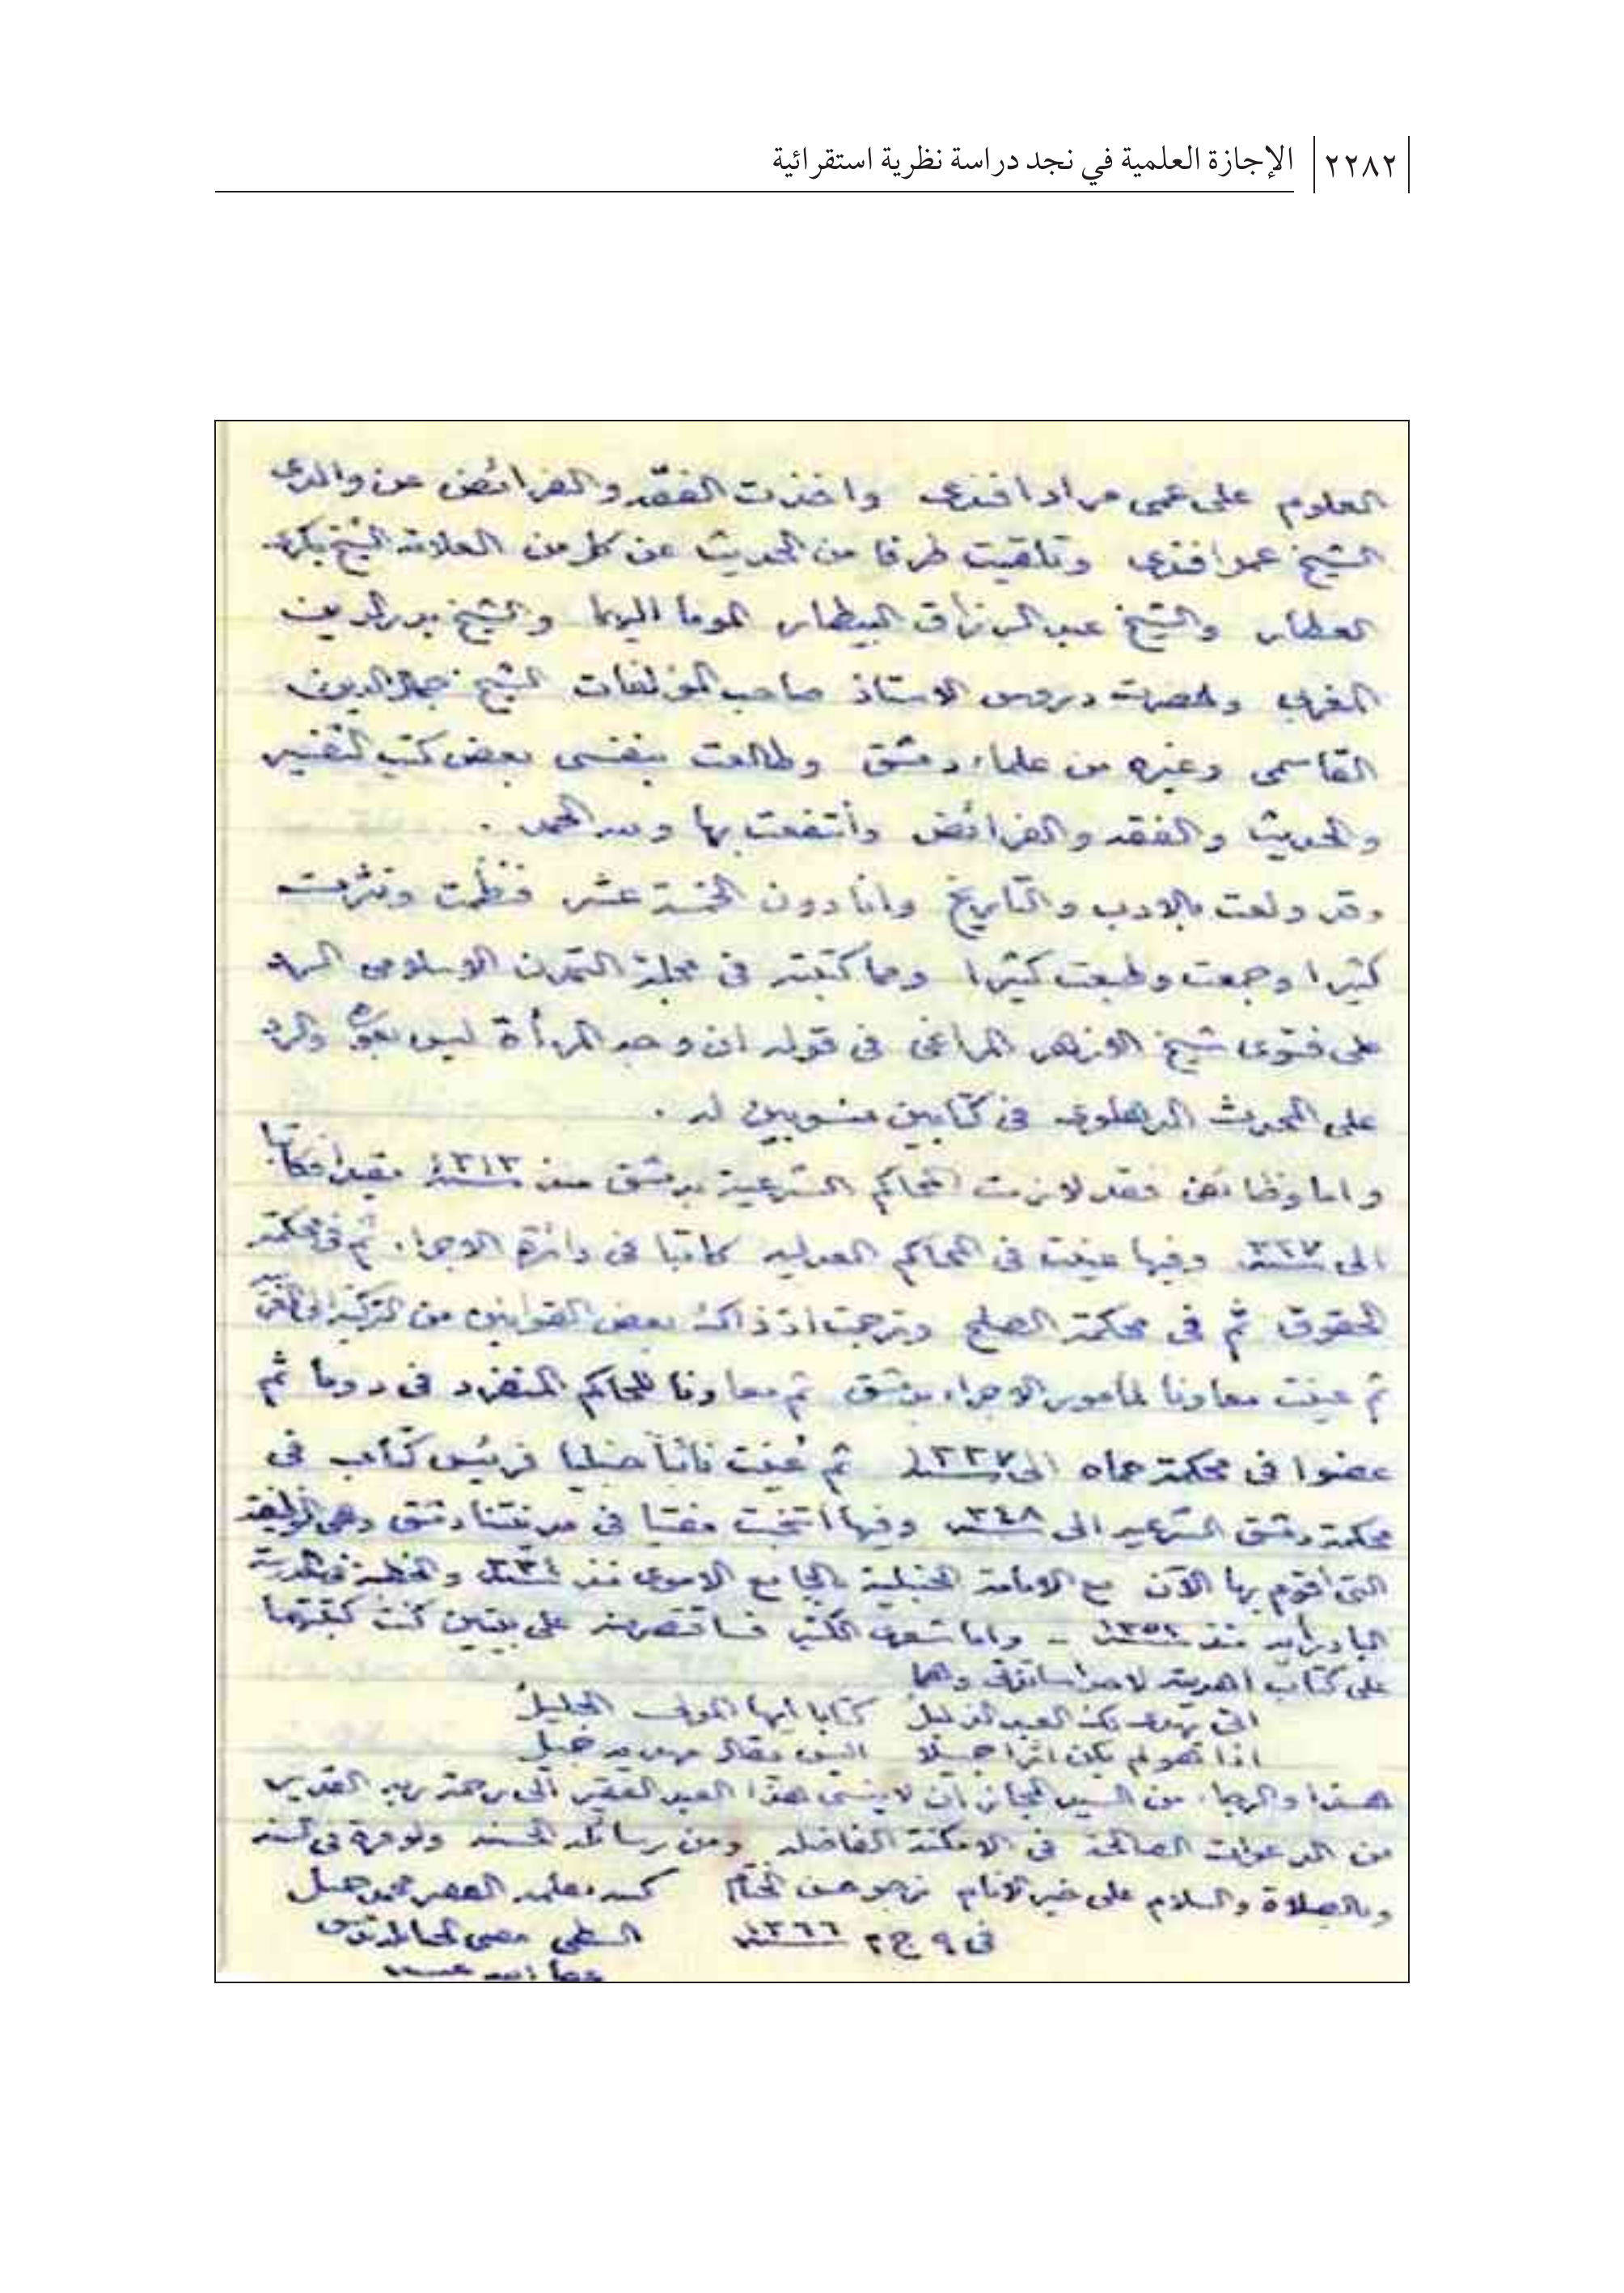 ٢٢٨٢ الإجازة العلمية في نجد دراسة نظرية استقرائية
العلوم على عمى مراد افندى واخذت الفقه والفرائض عن والدى
الشيخ عمر افندى وتلقيت طرفا من الحديث عن كل من العلامة الشيخ بكرى
العطار والشيخ عبد الرزاق البيطار الموما اليهما والشيخ بدر الدين
المغربى وحضرت دروس الاستاذ صاحب المؤلفات الشيخ جمال الدين
القاسمى وغيره من علماء دمشق وطالعت بنفسى بعض كتب التفسير
والحديث والفقه والفرائض وأنتفعت بها ولله الحمد .
وقد ولعت بالادب والتاريخ وانا دون الخمسة عشر فنظمت ونثرت
كثيرا وجمعت وطبعت كثيرا ومما كتبته فى مجلة التمدن الاسلامى الرد
على فتوى شيخ الازهر المراغى فى قوله ان وجه المرأة ليس بعورة والرد
على المحدث الدهلوى فى كتابين منسوبين له .
واما وظائفى فقد لازمت المحاكم الشرعية بدمشق منذ ١٣١٣ مقيدا فكاتبا
الى ١٣٢٧ وفيها عينت فى المحاكم العدلية كاتبا فى دائرة الاجراء ثم فى محكمة
الحقوق ثم فى محكمة الصلح وترجمت اذ ذاك بعض القوانين من التركية الى العربية
ثم عينت معاونا لمأمور الاجراء بدمشق ثم معاونا للحاكم المنفرد فى دوما ثم
عضوا فى محكمة حماه الى ١٣٣٧ ثم عُينت نائباً حنبليا فرئيس كتاب فى
محكمة دمشق الشرعية الى ١٣٤٨ وفيها انتخبت مفتيا فى مدينتنا دمشق وهى الوظيفة
التى اقوم بها الآن مع الامامة الحنبلية بالجامع الاموى منذ والخطبة فى مدرسة
البادرائية منذ - واما شعرى الكثير فساقتصر منه على بيتين كنت كتبتهما
على كتاب اهديته لاحد اساتذتى وهما
اتى يهدى لك العبد الذليل كتابا أيها المولى الجليل
اذا هو لم يكن اثرا جميلا اليس يقال مهديه جميل
هذا والرجاء من السيد المجاز أن لا ينسى هذا العبد الفقير الى رحمة ربه القدير
من الدعوات الصالحة فى الامكنة الفاضلة ومن رسائله الحسنة ولو مرة فى السنة
وبالصلاة والسلام على خير الانام نرجو حسن الختام كتبه بقلمه الفقير محمد جميل
فى ٩ ج ٢ ١٣٦٦ الشطى مفتى الحنابلة بدمشق
عفا الله عنه